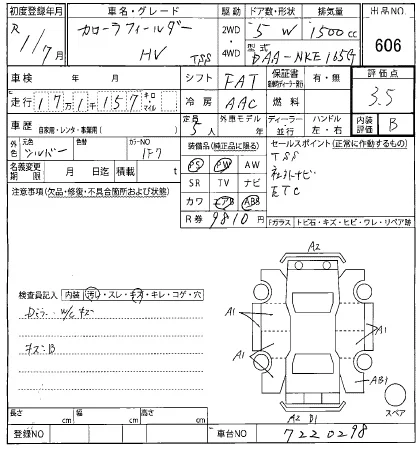 初度登録年月 車名・グレード 駆動 ドア数・形状 排気量 出品NO
R 1/7月 カローラフィールダー HV TSS 2WD・4WD 5 W 1500cc 606
型式 DAA-NKE165G
車検 年 月 シフト FAT 保証書 有・無 評価点 3.5
走行 17万1千157 キロ・マイル 冷房 AAC 燃料
車歴 自家用・レンタ・事業用( ) 定員 5人 外車モデル 年 ディーラー・並行 ハンドル 左・右 内装評価 B
外色 元色 シルバー 色替 カラーNO 1F7
装備品(純正品に限る) セールスポイント(正常に作動するもの)
名義変更期限 月 日迄 積載 t
PS PW AW TSS
SR TV ナビ
カワ エアB ABS ETC
R券 9810円
注意事項(欠品・修復・不具合箇所および状態)
Fガラス トビ石・キズ・ヒビ・ワレ・リペア跡
A2
検査員記入 内装 汚レ・スレ・キズ・キレ・コゲ・穴
A1 A1
キズB
A1
AB1
A2 B1
スペア
長さ cm 幅 cm 高さ cm
登録NO 車台NO 7220298